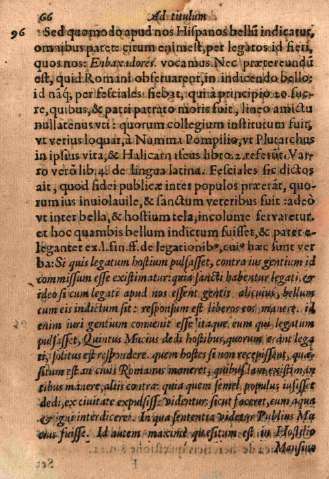 66 Ad titulum
96 Sed quomodo apud nos Hispanos bellū indicatur,
omnibus patet: citum enim est, per legatos id fieri,
quos nos: Enbaxadores. vocamus. Nec prætereundū
est, quid Romani obseruarent, in indicendo bello:
id nāq; per fesciales fiebat, qui à principio 20. fue-
re, quibus, & patri patrato moris fuit, lineo amictu
nullatenus vti: quorum collegium institutum fuit,
vt verius loquar, à Numma Pompilio, vt Plutarchus
in ipsius vita, & Halicarnaseus libro. 2. referūt. Var-
ro verò lib. 4. de lingua latina. Fesciales sic dictos
ait, quod fidei publicæ inter populos præerāt, quo-
rum ius inuiolauile, & sanctum veteribus fuit: adeò
vt inter bella, & hostium tela, incolume seruaretur.
et hoc quambis bellum indictum fuisset, & patet e-
leganter ex. l. fin. ff. de legationib⁹, cui⁹ hæc sunt ver
ba: Si quis legatum hostium pulsasset, contra ius gentium id
commissum esse existimatur: quia sancti habentur legati. &
ideo si cum legati apud nos essent gentis alicuius, bellum
cum eis indictum sit: responsum est liberos eos manere. id
enim iuri gentium conuenit esse. itaque eum qui legatum
pulsasset, Quintus Mucius dedi hostibus, quorum erant lega
ti, solitus est respondere. quem hostes si non recepissent, quæ-
situm est an ciuis Romanus maneret, quibusdam existiman
tibus manere, aliis contra: quia quem semel populus iusisset
dedi, ex ciuitate expulsisse videntur, sicut faceret, cum aqua
& igni interdiceret. In qua sententia videtur Publius Mu
cius fuisse. Id autem maxime quæsitum est in Hostilio
Mansino